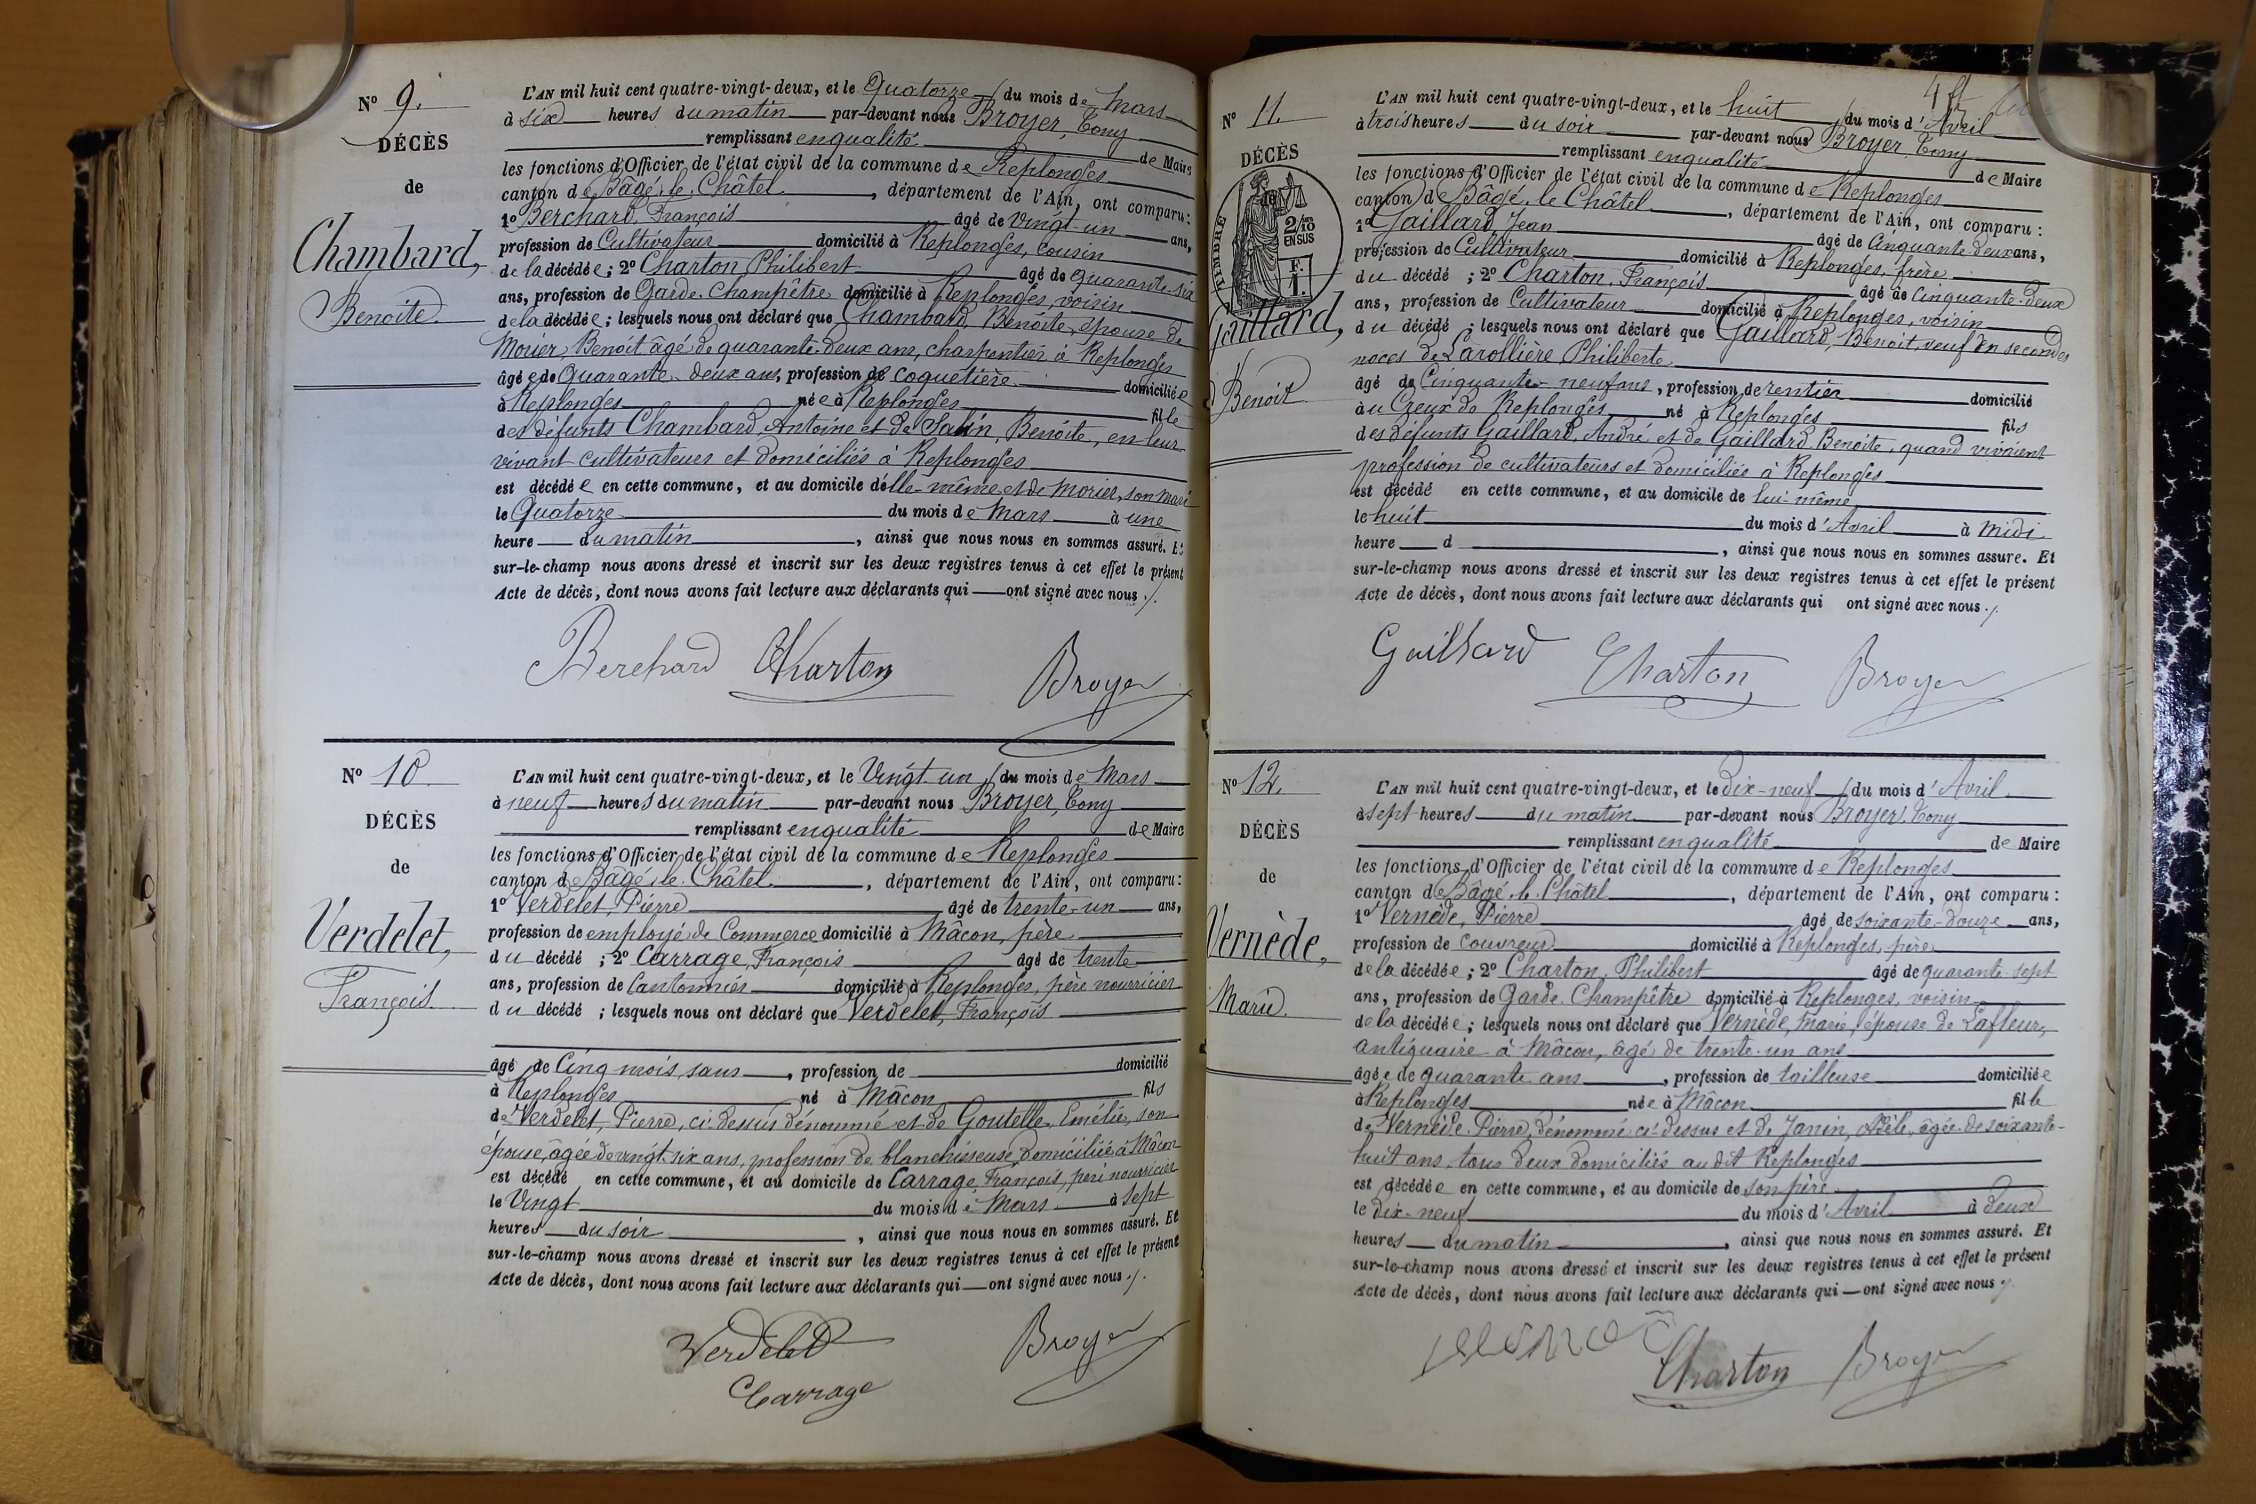 N° 9.
DÉCÈS
de
Chambard,
Benoite.
L'AN mil huit cent quatre-vingt-deux, et le Quatorze du mois de Mars
à six heures du matin par-devant nous Broyer, Tony
remplissant en qualité de Maire
les fonctions d'Officier de l'état civil de la commune de Replonges
canton de Bâgé-le-Châtel, département de l'Ain, ont comparu:
1° Berchard, François âgé de vingt-un ans,
profession de Cultivateur domicilié à Replonges, cousin
de la décédée; 2° Charton, Philibert âgé de quarante-six
ans, profession de Garde-Champêtre domicilié à Replonges, voisin
de la décédée; lesquels nous ont déclaré que Chambard, Benoite, épouse de
Morier, Benoit âgé de quarante-deux ans, charpentier à Replonges
âgée de Quarante-deux ans, profession de coquetière domiciliée
à Replonges née à Replonges fille
des défunts Chambard, Antoine et de Salin, Benoite, en leur
vivant cultivateurs et domiciliés à Replonges
est décédée en cette commune, et au domicile d'elle-même et de Morier, son mari
le Quatorze du mois de Mars à une
heure du matin, ainsi que nous nous en sommes assuré. Et
sur-le-champ nous avons dressé et inscrit sur les deux registres tenus à cet effet le présent
Acte de décès, dont nous avons fait lecture aux déclarants qui ont signé avec nous ./.
Berchard Charton Broyer
N° 10
DÉCÈS
de
Verdelet,
François.
L'AN mil huit cent quatre-vingt-deux, et le Vingt-un du mois de Mars
à neuf heures du matin par-devant nous Broyer, Tony
remplissant en qualité de Maire
les fonctions d'Officier de l'état civil de la commune de Replonges
canton de Bâgé-le-Châtel, département de l'Ain, ont comparu:
1° Verdelet, Pierre âgé de trente-un ans,
profession de employé de Commerce domicilié à Mâcon, père
du décédé; 2° Carrage, François âgé de trente
ans, profession de Cantonnier domicilié à Replonges, père nourricier
du décédé; lesquels nous ont déclaré que Verdelet, François
âgé de Cinq mois, sans, profession de domicilié
à Replonges né à Mâcon fils
de Verdelet, Pierre, ci-dessus dénommé et de Goutelle, Emélie, son
épouse, âgée de vingt-six ans, profession de blanchisseuse, domiciliée à Mâcon
est décédé en cette commune, et au domicile de Carrage, François, père nourricier
le Vingt du mois de Mars à sept
heures du soir, ainsi que nous nous en sommes assuré. Et
sur-le-champ nous avons dressé et inscrit sur les deux registres tenus à cet effet le présent
Acte de décès, dont nous avons fait lecture aux déclarants qui ont signé avec nous ./.
Verdelet Broyer
Carrage
N° 11.
DÉCÈS
de
TIMBRE
2/10
EN SUS
F.
1.
Gaillard,
Benoit
L'AN mil huit cent quatre-vingt-deux, et le huit du mois d'Avril
à trois heures du soir par-devant nous Broyer, Tony
remplissant en qualité de Maire
les fonctions d'Officier de l'état civil de la commune de Replonges
canton de Bâgé-le-Châtel, département de l'Ain, ont comparu:
1° Gaillard, Jean âgé de Cinquante-deux ans,
profession de Cultivateur domicilié à Replonges, frère
du décédé; 2° Charton, François âgé de Cinquante-deux
ans, profession de Cultivateur domicilié à Replonges, voisin
du décédé; lesquels nous ont déclaré que Gaillard, Benoit, veuf en secondes
noces de Larollière Philiberte
âgé de Cinquante-neuf ans, profession de rentier domicilié
au Creux de Replonges né à Replonges fils
des défunts Gaillard, André et de Gaillard Benoite, quand vivaient
profession de cultivateurs et domiciliés à Replonges
est décédé en cette commune, et au domicile de lui-même
le huit du mois d'Avril à midi
heure d, ainsi que nous nous en sommes assuré. Et
sur-le-champ nous avons dressé et inscrit sur les deux registres tenus à cet effet le présent
Acte de décès, dont nous avons fait lecture aux déclarants qui ont signé avec nous ./.
Gaillard Charton Broyer
N° 12.
DÉCÈS
de
Vernède,
Marie.
L'AN mil huit cent quatre-vingt-deux, et le Dix-neuf du mois d'Avril
à sept heures du matin par-devant nous Broyer, Tony
remplissant en qualité de Maire
les fonctions d'Officier de l'état civil de la commune de Replonges
canton de Bâgé-le-Châtel, département de l'Ain, ont comparu:
1° Vernède, Pierre âgé de soixante-douze ans,
profession de couvreur domicilié à Replonges, père
de la décédée; 2° Charton, Philibert âgé de quarante-sept
ans, profession de Garde-Champêtre domicilié à Replonges, voisin
de la décédée; lesquels nous ont déclaré que Vernède, Marie, épouse de Lafleur,
antiquaire à Mâcon, âgé de trente-un ans
âgée de quarante ans, profession de tailleuse domiciliée
à Replonges née à Mâcon fille
de Vernède Pierre, dénommé ci-dessus et de Janin, Adèle, âgée de soixante-
huit ans, tous deux domiciliés au dit Replonges
est décédée en cette commune, et au domicile de son père
le dix-neuf du mois d'Avril à deux
heures du matin, ainsi que nous nous en sommes assuré. Et
sur-le-champ nous avons dressé et inscrit sur les deux registres tenus à cet effet le présent
Acte de décès, dont nous avons fait lecture aux déclarants qui ont signé avec nous ./.
Charton Broyer